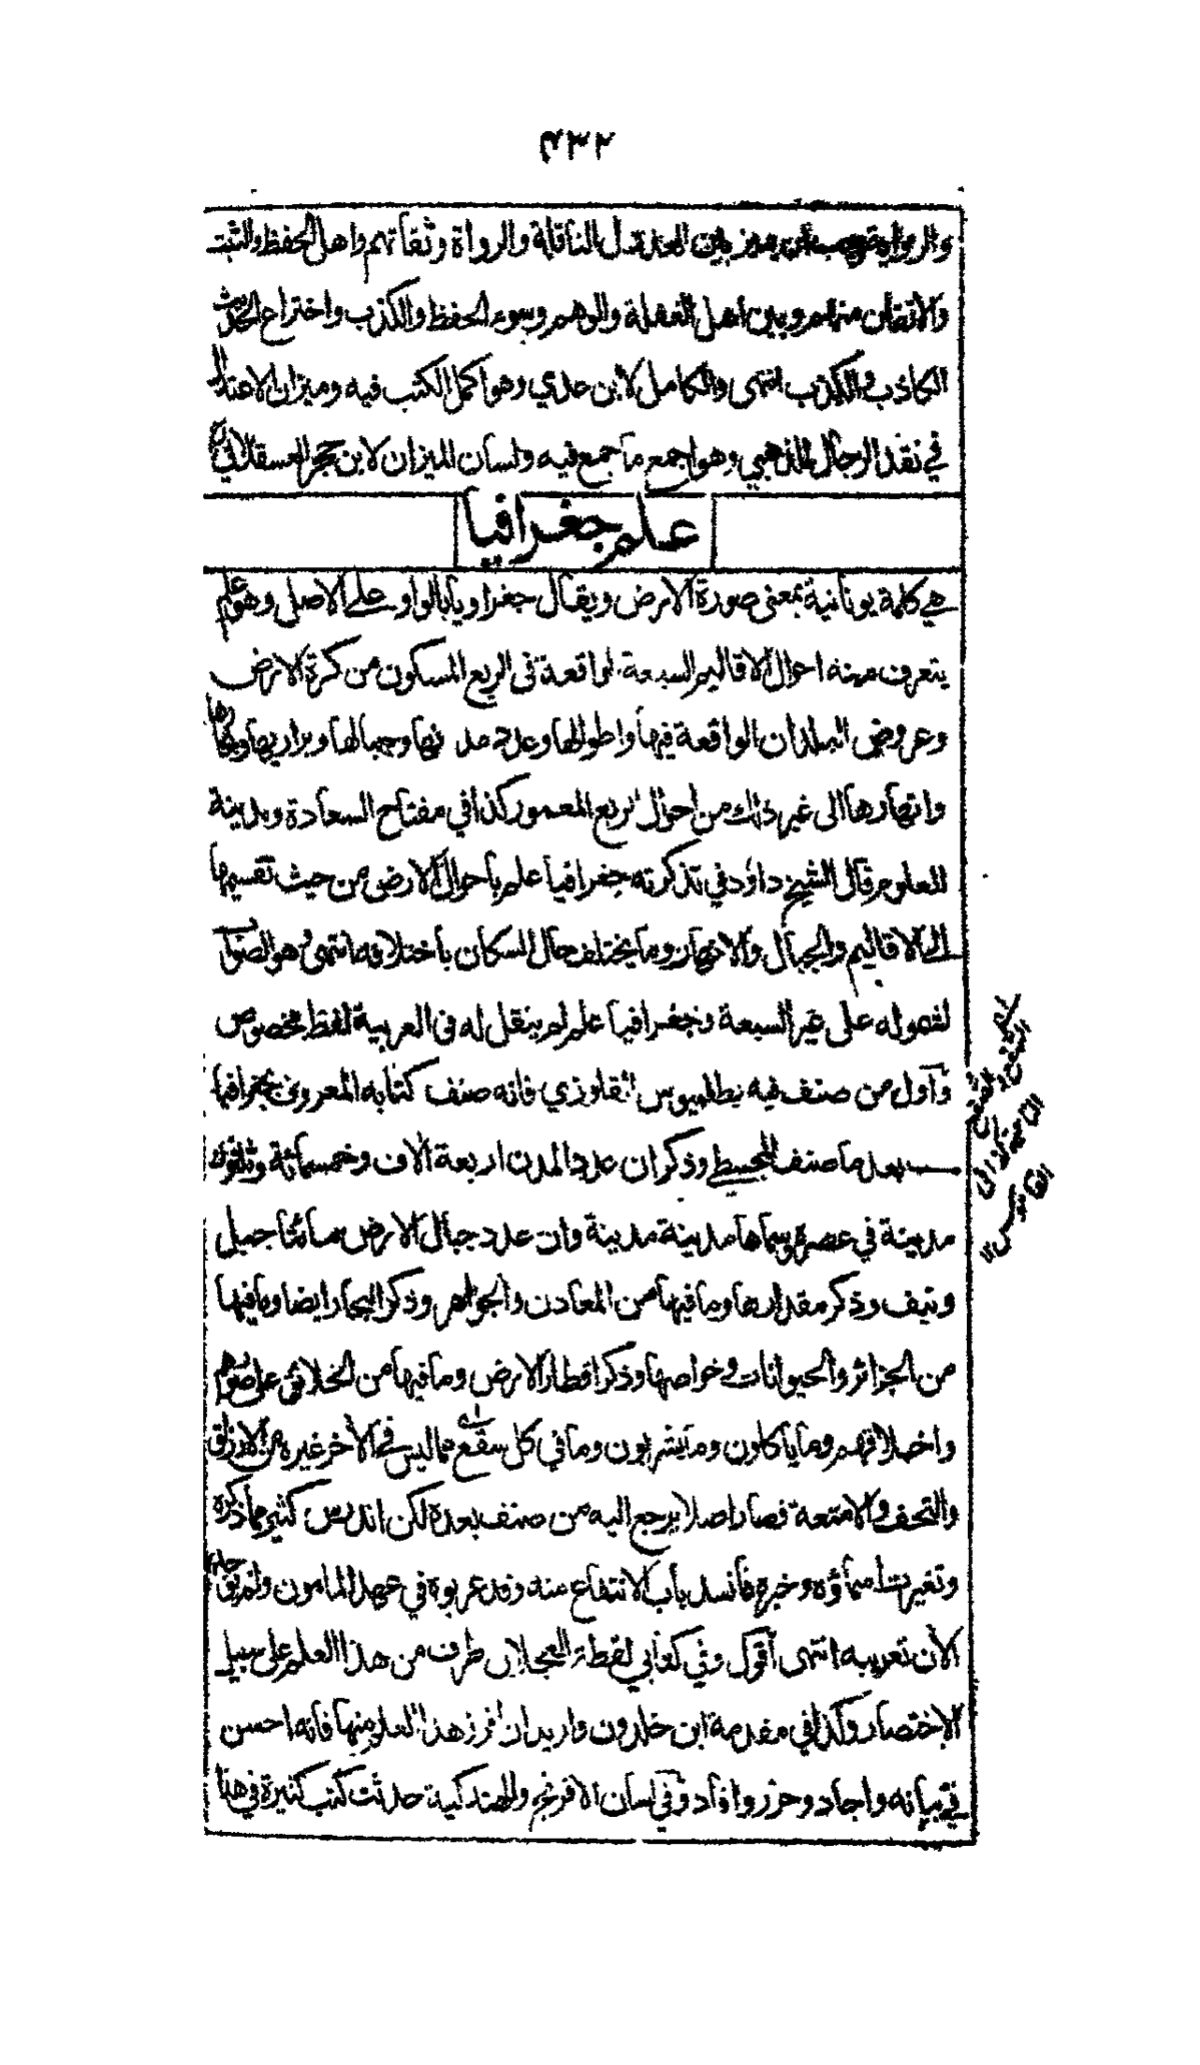 ٤٣٢
والرواية وجب أن يميز بين العدل الناقلة والرواة وثقاتهم واهل الحفظ والثبت
والاتقان منهم وبين اهل الغفلة والوهم وسوء الحفظ والكذب واختراع الحديث
الكاذب والكذب انتهى والكامل لابن عدي وهو اكمل الكتب فيه وميزان الاعتدال
في نقد الرجال للذهبي وهو اجمع ما جمع فيه ولسان الميزان لابن حجر العسقلاني
علم جغرافيا
هي كلمة يونانية بمعنى صورة الارض ويقال جغراويا بالواو على الاصل وهو علم
يتعرف منه احوال الاقاليم السبعة الواقعة في الربع المسكون من كرة الارض
وعروض البلدان الواقعة فيها واطوالها وعدد مدنها وجبالها وبراريها وبحارها
وانهارها الى غير ذلك من احوال الربع المعمور كذا في مفتاح السعادة ومدينة
العلوم قال الشيخ داود في تذكرته جغرافيا علم باحوال الارض من حيث تقسيمها
الى الاقاليم والجبال والانهار وما يختلف حال السكان باختلافه انتهى وهو الصواب
لشموله على غير السبعة وجغرافيا علم لم ينقل له في العربية لفظ مخصوص
وأول من صنف فيه بطلميوس القلوزي فانه صنف كتابه المعروف بجغرافيا
بعد ما صنف المجسطي وذكر ان عدد المدن اربعة آلاف وخمسمائة وثلثون
مدينة في عصره وسماها مدينة مدينة وان عدد جبال الارض مائتا جبل
ونيف وذكر مقدارها وما فيها من المعادن والجواهر وذكر البحار ايضا وما فيها
من الجزائر والحيوانات وخواصها وذكر اقطار الارض وما فيها من الخلائق على صورهم
واخلاقهم وما ياكلون وما يشربون وما في كل سقع مما ليس في الآخر غيره من الارزاق
والتحف والامتعة فصار اصلا يرجع اليه من صنف بعده لكن اندرس كثير مما ذكره
وتغيرت اسماؤه وخبره فانسد باب الانتفاع منه وقد عربوه في عهد المامون ولم يبق
الآن تعريبه انتهى أقول وفي كتابي لقطة العجلان طرف من هذا العلم على سبيل
الاختصار وكذا في مقدمة ابن خلدون واريد ان افرز هذا العلم منها فانه احسن
في بيانه واجاد وحرر وافاد وفي لسان الافرنج والهندكية حدثت كتب كثيرة في هذا